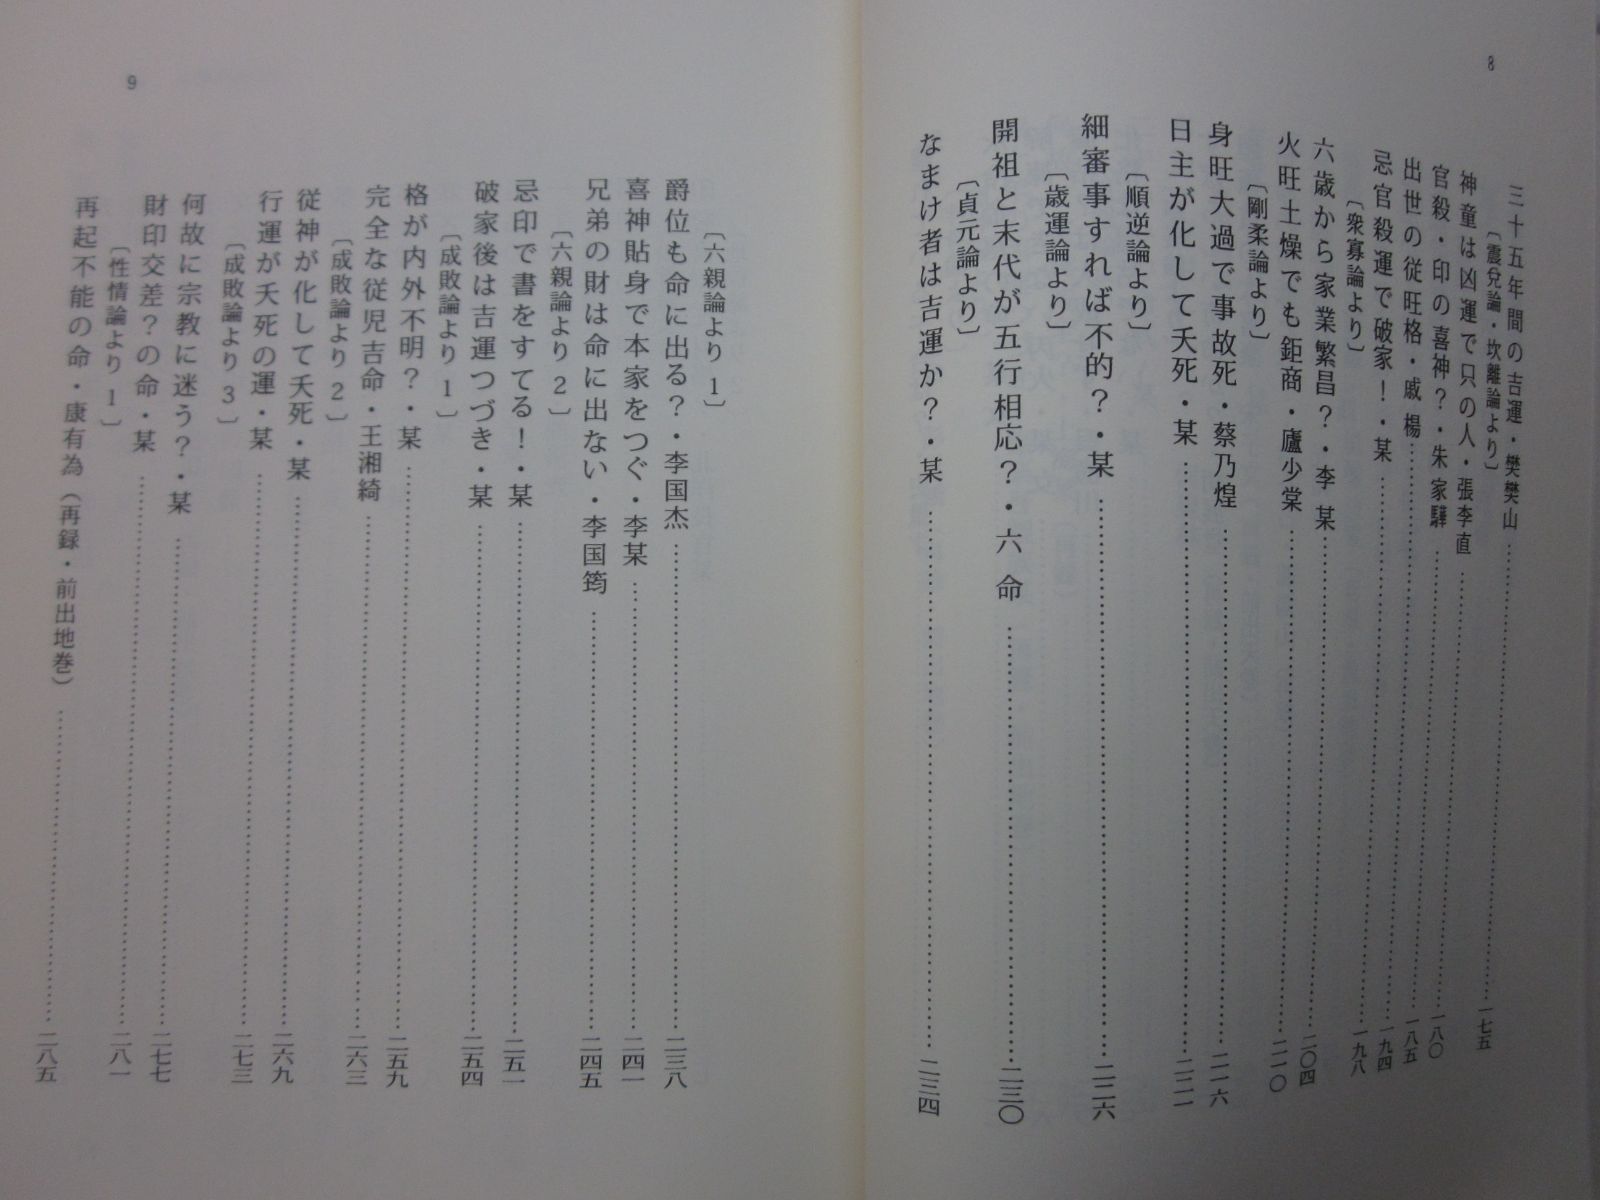 8
三十五年間の吉運・樊樊山……一七五
〔震兌論・坎離論より〕
神童は凶運で只の人・張李直……一八〇
官殺・印の喜神？・朱家驊……一八五
出世の従旺格・戚楊……一九四
忌官殺運で破家！・某……一九八
〔衆寡論より〕
六歳から家業繁昌？・李某……二〇四
火旺土燥でも鉅商・廬少堂……二一〇
〔剛柔論より〕
身旺大過で事故死・蔡乃煌……二一六
日主が化して夭死・某……二二一
〔順逆論より〕
細審事すれば不的？・某……二二六
〔歳運論より〕
開祖と末代が五行相応？・六命……二三〇
〔貞元論より〕
なまけ者は吉運か？・某……二三四
9
〔六親論より1〕
爵位も命に出る？・李国杰……二三八
喜神貼身で本家をつぐ・李某……二四一
兄弟の財は命に出ない・李国筠……二四五
〔六親論より2〕
忌印で書をすてる！・某……二五一
破家後は吉運つづき・某……二五四
〔成敗論より1〕
格が内外不明？・某……二五九
完全な従児吉命・王湘綺……二六三
〔成敗論より2〕
従神が化して夭死・某……二六九
行運が夭死の運・某……二七三
〔成敗論より3〕
何故に宗教に迷う？・某……二七七
財印交差？の命・某……二八一
〔性情論より1〕
再起不能の命・康有為（再録・前出地巻）……二八五